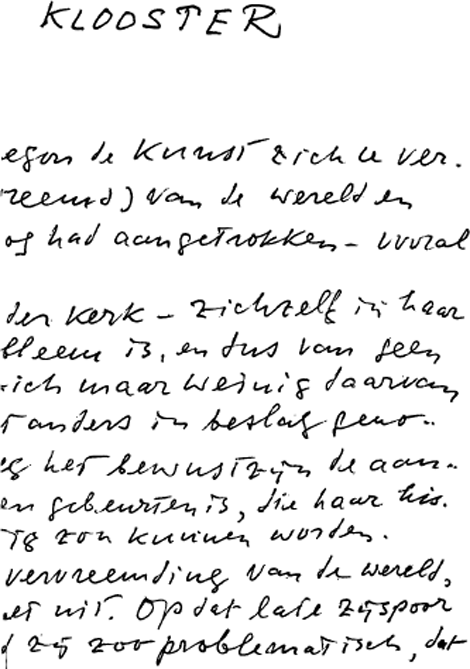 KLOOSTER
egon de Kunst zich te ver.
reemd) van de wereld en
og had aangetrokken - vooral
der Kerk - zichzelf in haar
bleem is, en dus van geen
zich maar weinig daarvan
t anders in beslag geno..
eg het bewustzijn de aan..
en gebeurtenis, die haar his.
ig zou kunnen worden.
vervreemding van de wereld,
et uit. Op dat late zijspoor
d zij zoo problematisch, dat